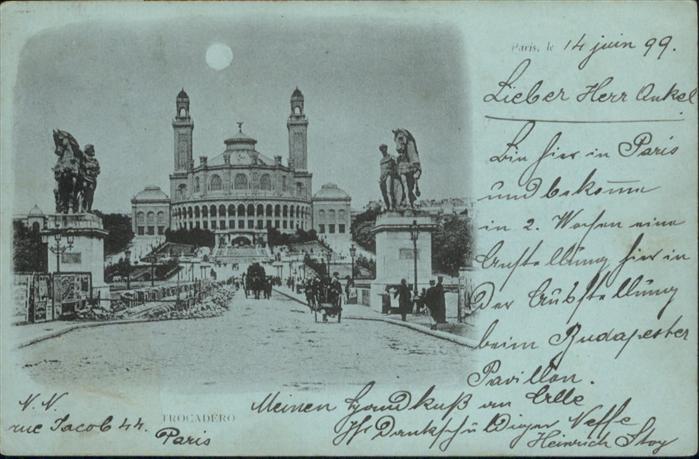 Paris, le 14 juin 99.
Lieber Herr Onkel
Bin hier in Paris
und bekomme
in 2. Wochen eine
Anstellung hier in
Der Außstellung
beim Budapester
Pavillon.
Meinen Handkuß an Alle
Ihr Dankschuldiger Neffe
Heinrich
N. N.
rue Jacob 44.
Paris
TROCADÉRO